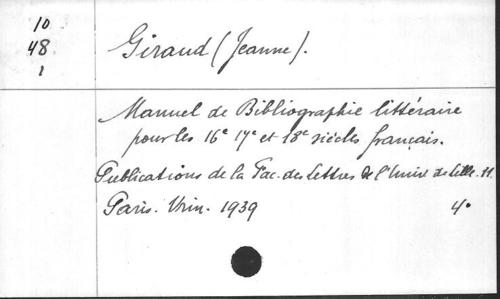 10
48
1
Giraud (Jeanne).
Manuel de Bibliographie littéraire
pour les 16e 17e et 18e siècles français.
Publications de la Fac. des Lettres de l'Univ de Lille. 11.
Paris. Vrin. 1939
4o